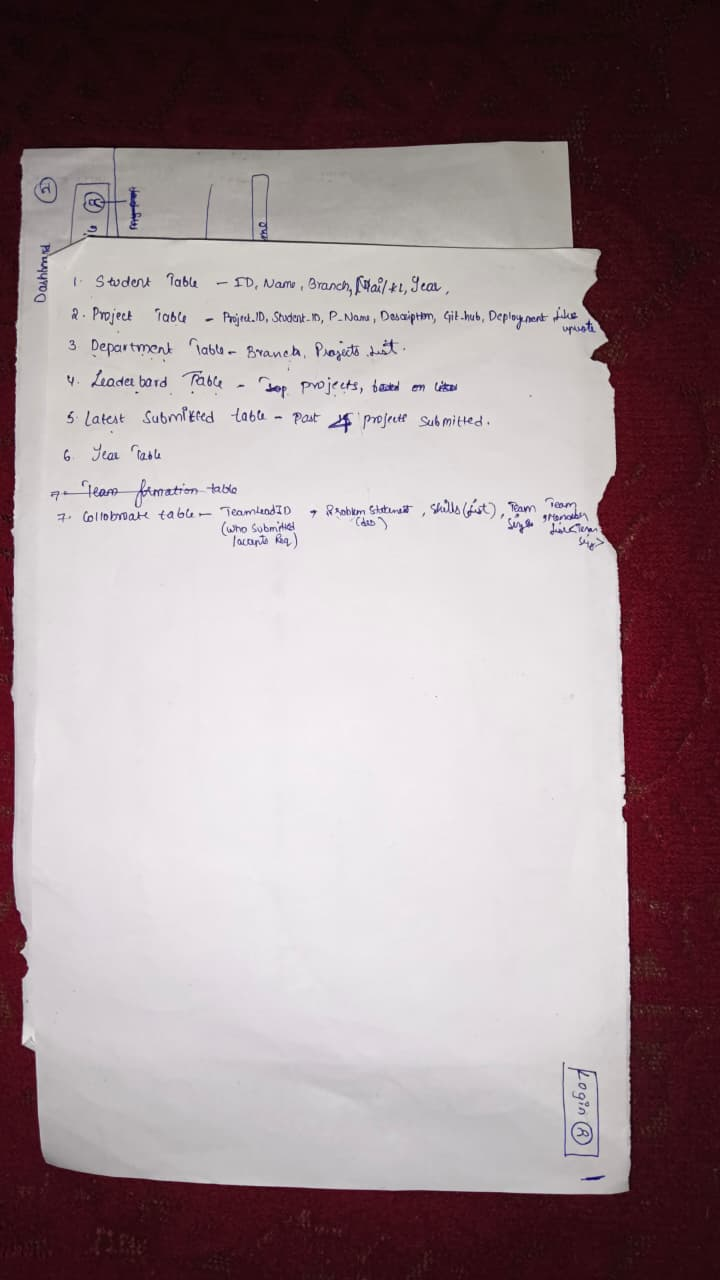 Dashboard
2
R
1. Student Table - ID, Name, Branch, Year,
2. Project Table - Project_ID, Student_ID, P_Name, Description, Git-hub, Deployment Like
upvote
3. Department Table - Branch, Projects List.
4. Leader board Table - Top projects, based on likes
5. Latest Submitted table - Past projects Submitted.
6. Year Table
7. Team formation table
7. Collobroate table - TeamleadID , Problem Statement, Skills (List), Team Team
(who submitted (des) Size Member
/ accepts Req) List Team
Size>
Login R